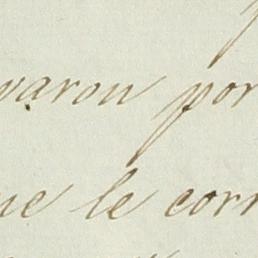 varon por
ue le corr